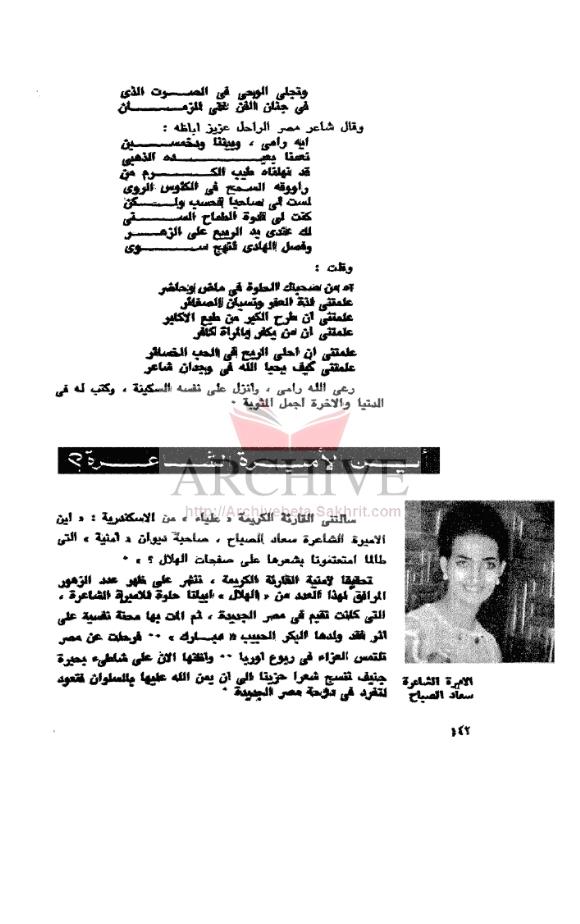 وتجلى الوحى فى الصـــوت الذى
فى جنان الفن غنى المزمـــــان
وقال شاعر مصر الراحل عزيز اباظه :
ايه رامى ، وبيننا ودخمســـين
نعمنا بعهـــــــده الذهبى
قد نهلناه طيب الكـــــرم من
راووقه السمح فى الكئوس الروى
لست لى صاحبا فحسب ولـــكن
كنت لى قدوة الطماح الســـتى
لك عندى يد الربيع على الزهـــر
وفضل الهادى لنهج ســـــوى
وقلت :
آه من صحبتك الحلوة فى ماض وحاضر
علمتنى لذة العفو ونسيان الصغائر
علمتنى ان طرح الكبر من طبع الاكابر
علمتنى ان من يكفر بالمرأة كافر
علمتنى ان احلى الربح فى الحب الخسائر
علمتنى كيف يحيا الله فى وجدان شاعر
رعى الله رامى ، وانزل على نفسه السكينة ، وكتب له فى
الدنيا والاخرة اجمل المثوبة .
أيـــن الأميـــرة الشـاعـــرة؟
ARCHIVE
http://Archivebeta.Sakhrit.com
سألتنى القارئة الكريمة « علياء » من الاسكندرية : « اين
الاميرة الشاعرة سعاد الصباح ، صاحبة ديوان « امنية » التى
طالما امتعتمونا بشعرها على صفحات الهلال ؟ » .
تحقيقا لامنية القارئة الكريمة ، ننشر على ظهر عدد الزهور
المرافق لهذا العدد من « الهلال » ابياتا حلوة للاميرة الشاعرة ،
التى كانت تقيم فى مصر الجديدة ، ثم المت بها محنة نفسية على
اثر فقد ولدها البكر الحبيب « مبارك » .. فرحلت عن مصر
تلتمس العزاء فى ربوع اوربا .. واظنها الآن على شاطىء بحيرة
جنيف تنسج شعرا حزينا الى ان يمن الله عليها بالسلوان فتعود
لتغرد فى دوحة مصر الجديدة .
الاميرة الشاعرة
سعاد الصباح
١٤٢